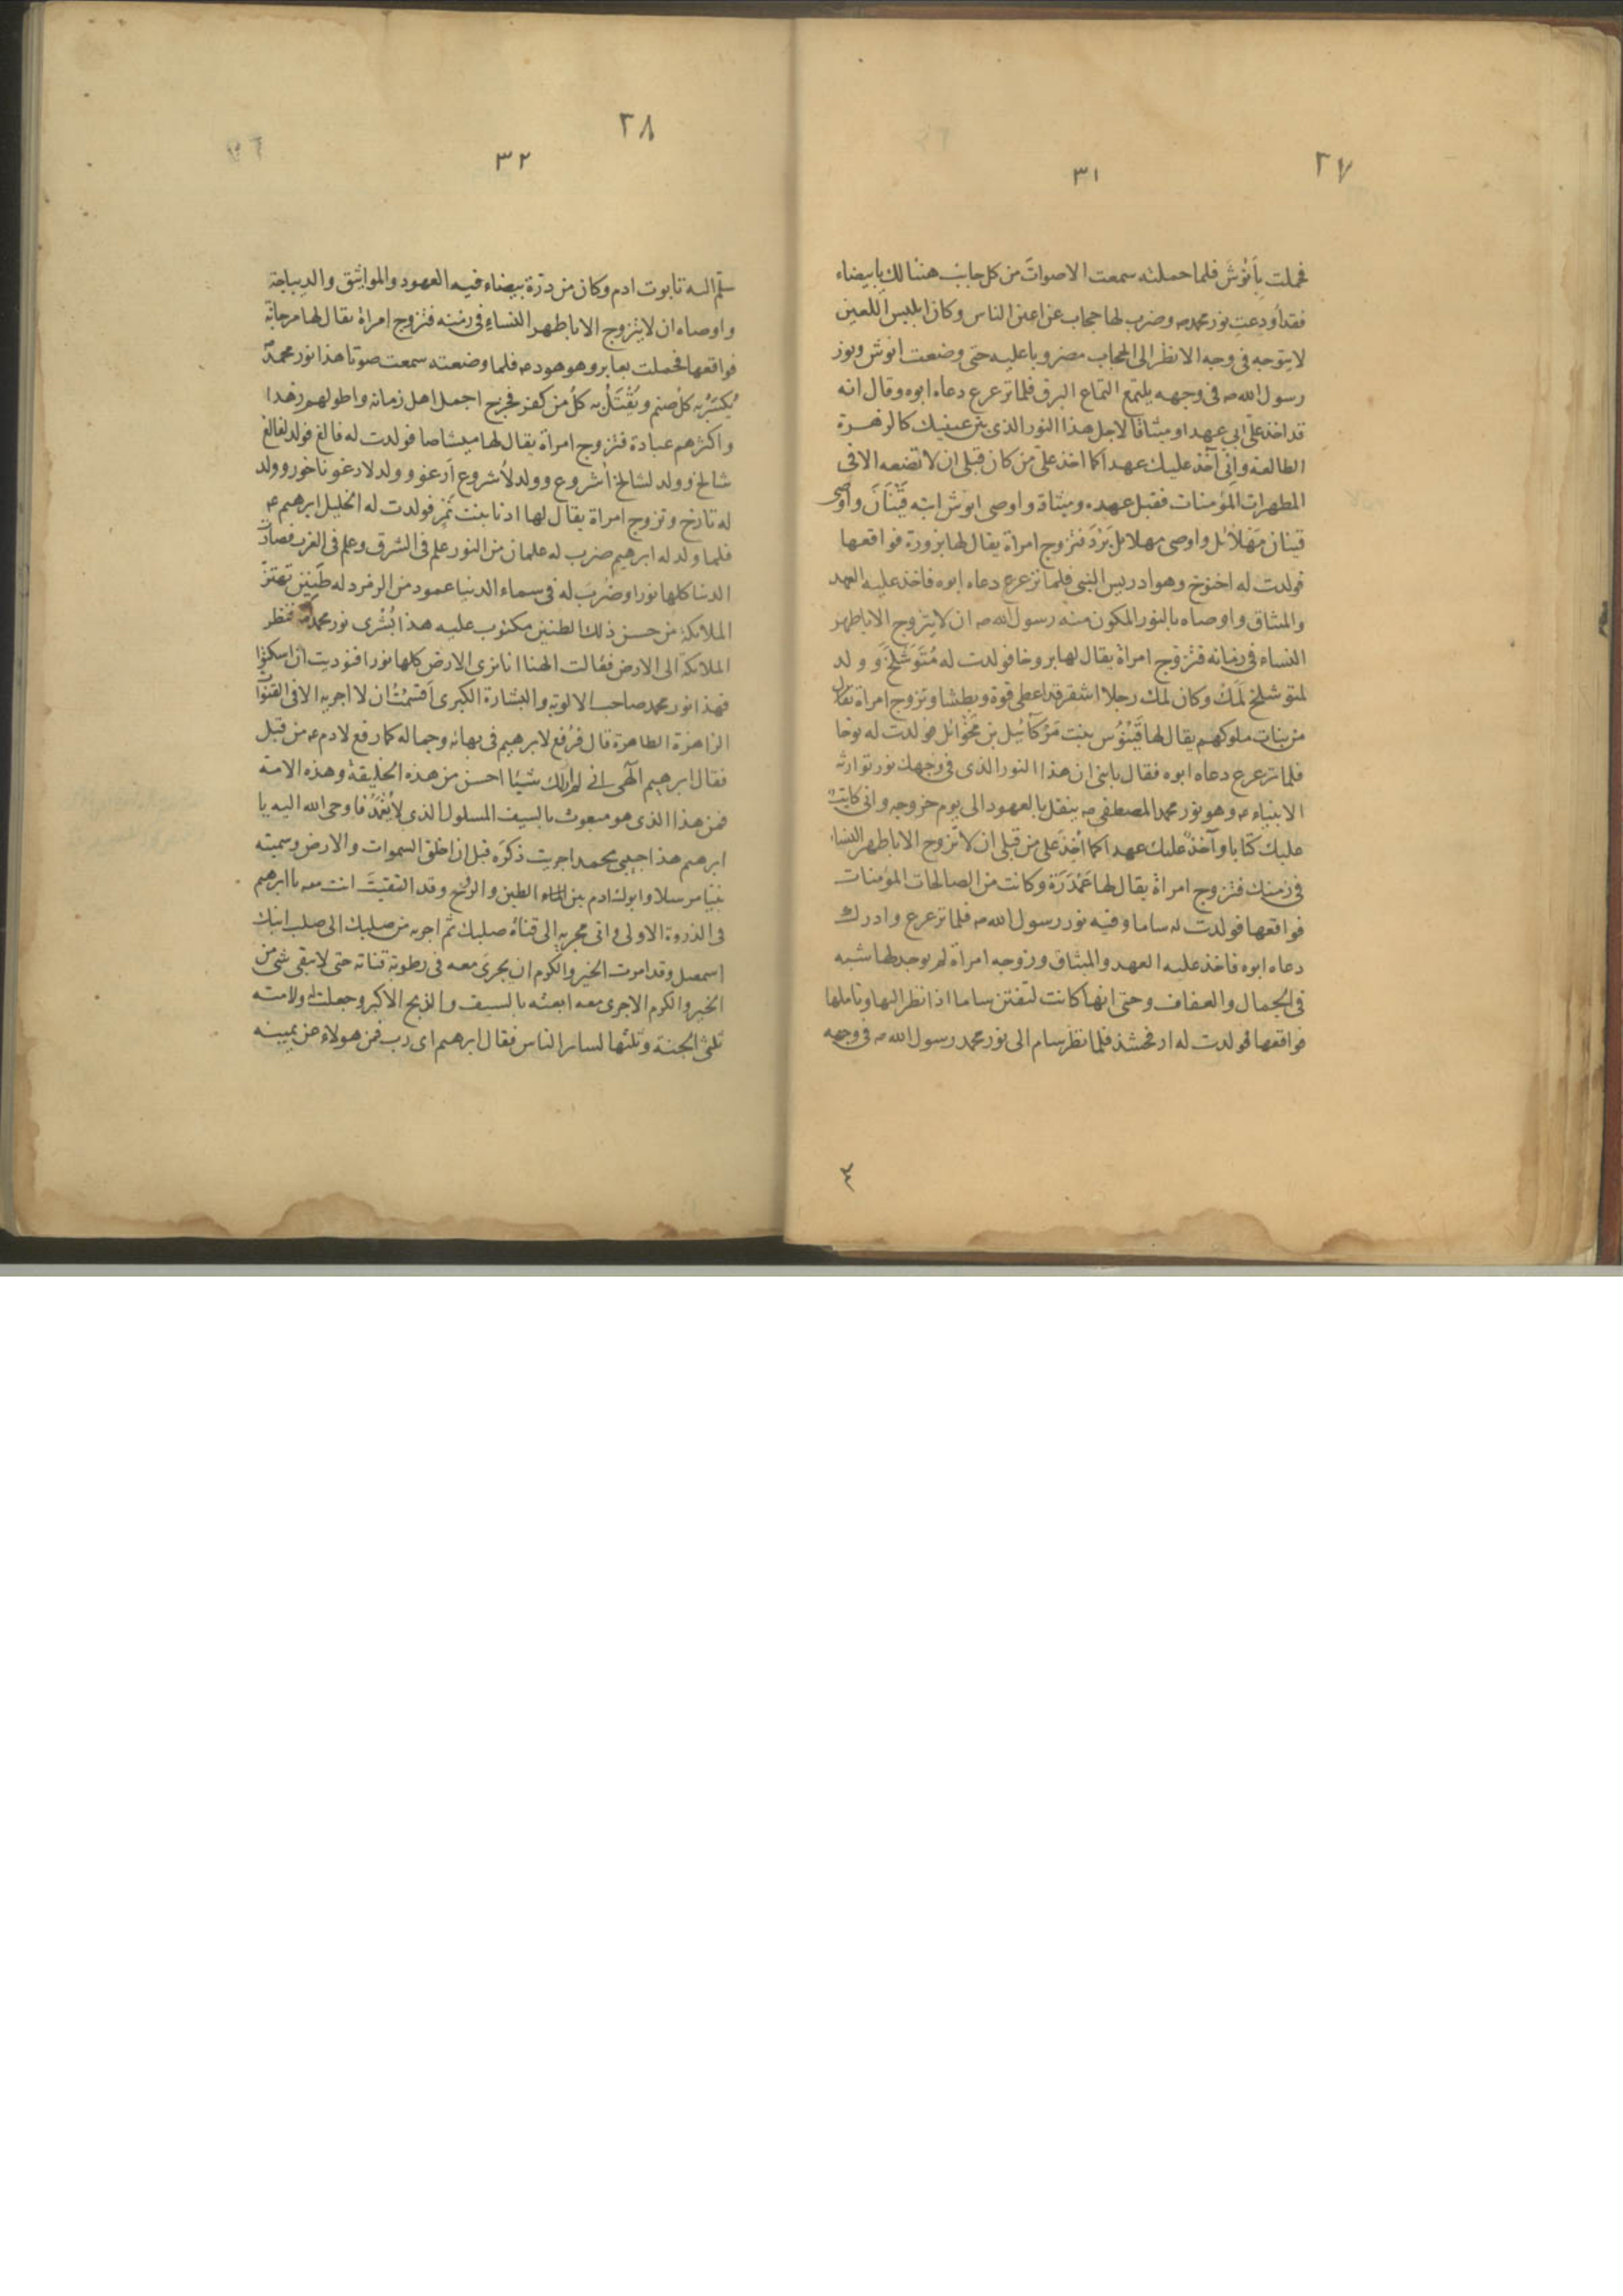 ٢٧
٣١
فحملت بِأَنُوشَ فلما حملته سمعت الاصواتَ من كل جانب هنئا لكِ يا بيضاء
فقد أودعتِ نور محمد صه وضرب لها حجاب عن اعين الناس وكان ابليس اللعين
لا يتوجه فى وجه الا نظر الى الحجاب مضروبا عليه حتى وضعت انوش ونور
رسول الله صه فى وجهه يلتمع التماع البرق فلما ترعرع دعاه ابوه وقال انه
قد اخذ علىّ ابى عهدا وميثاقا لاجل هذا النور الذى بين عينيك كالزهرة
الطالعة وانى آخذ عليك عهدا كما اخذ علىّ من كان قبلى ان لا تضعه الا فى
المطهرات المؤمنات فقبل عهده وميثاقه واوصى انوش ابنه قَيْنَانَ واوصى
قينان مَهْلَائل واوصى مهلائل يَرْدَ فتزوج امراة يقال لها بروره فواقعها
فولدت له اخنوخ وهو ادريس النبى فلما ترعرع دعاه ابوه فاخذ عليه العهد
والمثاق واوصاه بالنور المكون منه رسول الله صه ان لا يتزوج الا باطهر
النساء فى زمانه فتزوج امراة يقال لها بروخا فولدت له مُتَوَشْلَخَ و ولد
لمتوشلخ لمك وكان لمك رجلا اشقر قد اعطى قوة وبطشا وتزوج امراة يقال
من بنات ملوكهم يقال لها قَيْنُوْس بنت مَرْكآئيل بن مَحْوَائل فولدت له نوحا
فلما ترعرع دعاه ابوه فقال يابنى ان هذا النور الذى فى وجهك نور توارثه
الانبياء عم وهو نور محمد المصطفى صه ينقل بالعهود الى يوم خروجه وانى كاتب
عليك كتابا وآخذ عليك عهدا كما أُخِذَ على من قبلى ان لا تزوج الا باطهر النساء
فى زمنك فتزوج امراة يقال لها عَمْذَرَة وكانت من الصالحات المؤمنات
فواقعها فولدت له ساما وفيه نور رسول الله صه فلما ترعرع وادرك
دعاه ابوه فاخذ عليه العهد والميثاق وزوجه امراة لم يوجد لها شبه
فى الجمال والعفاف وحتى انها كانت لتفتن ساما اذا نظر اليها وتاملها
فواقعها فولدت له ارفحشذ فلما نظر سام الى نور محمد رسول الله صه فى وجهه
٣
٢٨
٣٢
سلم اليه تابوت ادم وكان من درّة بيضاء فيه العهود والمواثيق والديباجة
واوصاه ان لا يتزوج الا باطهر النساء فى زمنه فتزوج امراة يقال لها مرجانة
فواقعها فحملت بعابر وهو هود عم فلما وضعته سمعت صوتا هذا نور محمد صه
يُكْسَرُ به كل صنم ويُقْتَلُ به كلُ من كفر فخرج اجمل اهل زمانه واطولهم زهدا
واكثرهم عبادة فتزوج امراة يقال لها ميشاصا فولدت له فالغ فولد لفالغ
شالخ وولد لشالخ أشروع وولد لأشروع أرعو وولد لارعو ناخور وولد
له تارخ وتزوج امراة يقال لها ادنا بنت نمر فولدت له الخليل ابرهيم عم
فلما ولد له ابرهيم ضرب له علمان من النور علم فى الشرق وعلم فى الغرب فصارت
الدنيا كلها نورا وضُرِبَ له فى سماء الدنيا عمود من الزمرد له طنين تهتز
الملائكة من حسن ذلك الطنين مكتوب عليه هذا بُشْرى نور محمد صه فنظر
الملائكة الى الارض فقالت الهنا انا نرى الارض كلها نورا فنوديت ان اسكنوا
فهذا نور محمد صاحب الالوية والبشارة الكبرى اَقسَمْتُ ان لا اجريه الا فى القنوات
الزاهرة الطاهرة قال فرُفع لابرهيم فى بهائه وجماله كما رفع لادم عم من قبل
فقال ابرهيم الهى انى لم ار لك شيئا احسن من هذه الخليقة وهذه الامة
فمن هذا الذى هو مبعوث بالسيف المسلول الذى لا يُغْمَدُ فاوحى الله اليه يا
ابرهيم هذا حبيبى محمد اجريت ذكره قبل ان اخلق السموات والارض وسميته
نبيا مرسلا وابوك ادم بين الماء الطين والروح وقد التقيتَ انت معه يا ابرهيم
فى الذروة الاولى وانى مجريه الى قناة صلبك ثم اجريه من صلبك الى صلب ابنك
اسمعيل وقد امرت الخير والكرم ان يجرىَ معه فى رطوبة قناته حتى لا يبقى شئ من
الخير والكرم الا جرى معه ابعثه بالسيف والذبح الاكبر وجعلت له ولامته
ثلثى الجنة وثلثها لسائر الناس فقال ابرهيم اى رب فمن هولاء عن يمينه